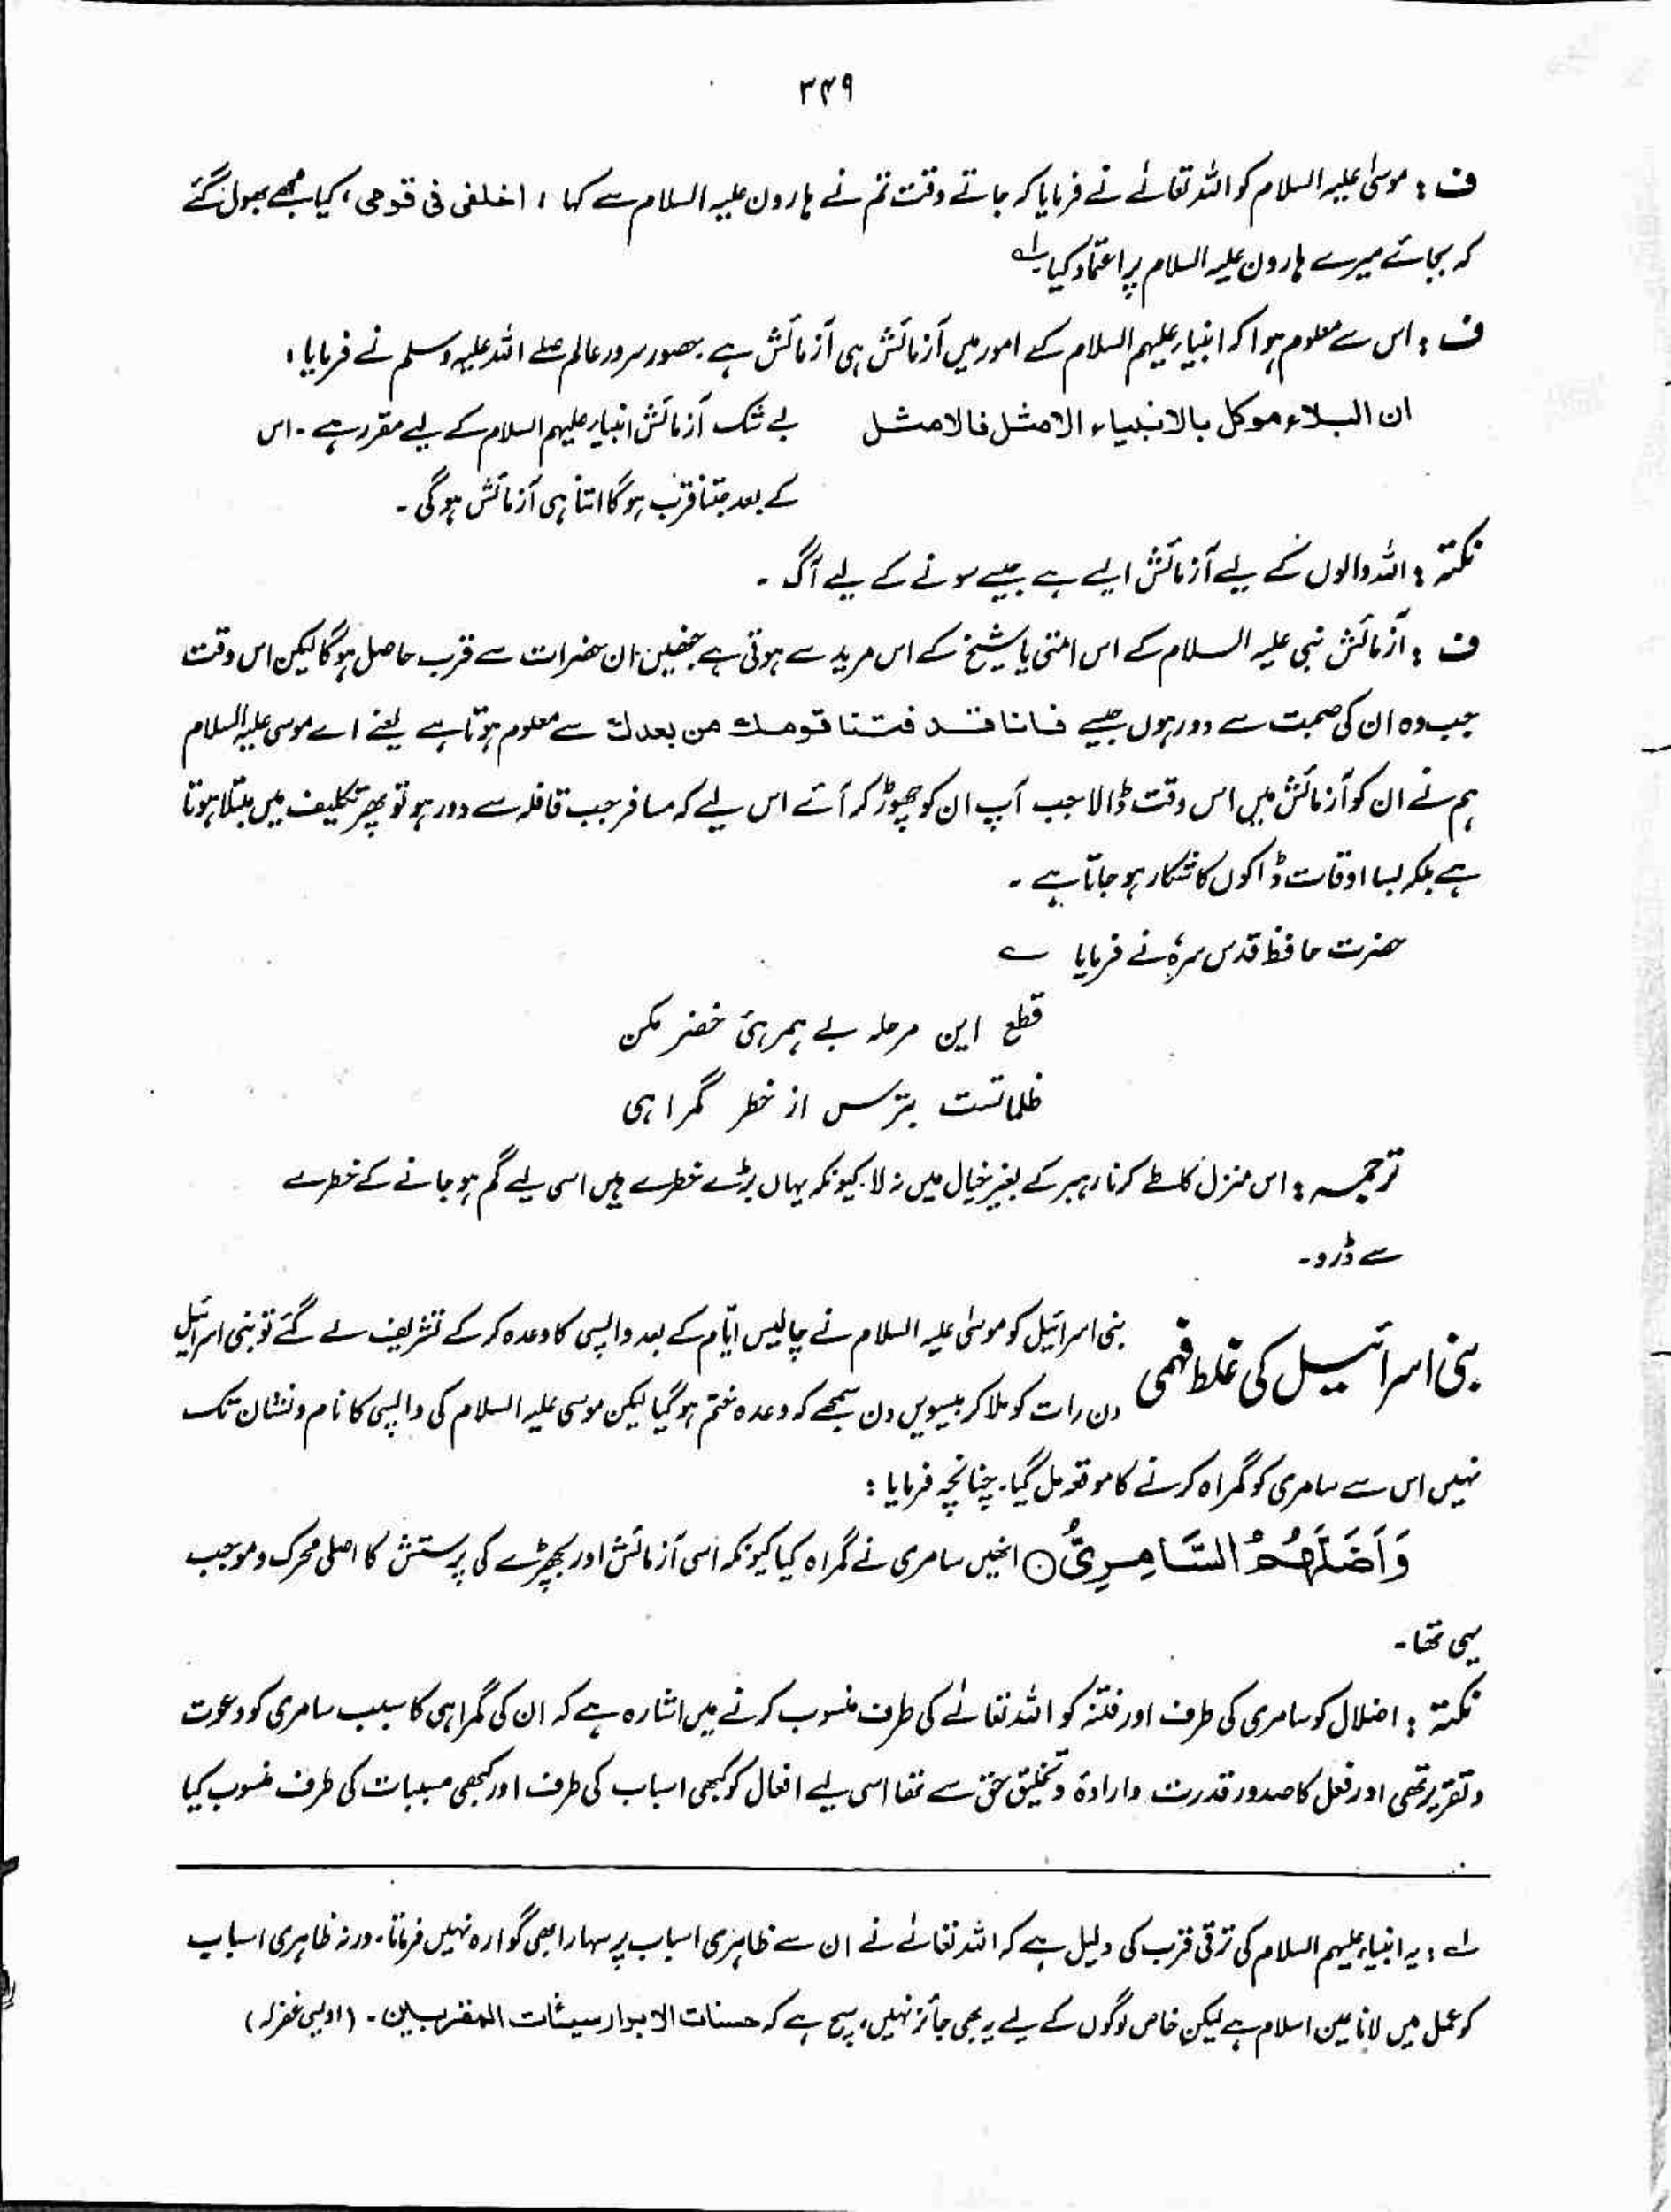 ۳۴۹
ف : موسیٰ علیہ السلام کو اللہ تعالےٰ نے فرمایا کہ جاتے وقت تم نے ہارون علیہ السلام سے کہا : اخلفی فی قومی ، کیا مجھے بھول گئے
کہ بجائے میرے ہارون علیہ السلام پر اعتماد کیا لہ
ف : اس سے معلوم ہوا کہ انبیاء علیہم السلام کے امور میں آزمائش ہی آزمائش ہے ۔ حضور سرور عالم صلے اللہ علیہ وسلم نے فرمایا :
ان البلاء موکل بالانبیاء الامثل فالامثل بے شک آزمائش انبیاء علیہم السلام کے لیے مقرر ہے ۔ اس
کے بعد جتنا قرب ہوگا اتنا ہی آزمائش ہوگی ۔
نکتہ : اللہ والوں کے لیے آزمائش ایسے ہے جیسے سونے کے لیے آگ ۔
ف : آزمائش نبی علیہ السلام کے اس امتی یا شیخ کے اس مرید سے ہوتی ہے جنھیں ان حضرات سے قرب حاصل ہوگا لیکن اس وقت
جب وہ ان کی صحبت سے دور ہوں جیسے فانا قد فتنا قومك من بعدك سے معلوم ہوتا ہے یعنے اے موسی علیہ السلام
ہم نے ان کو آزمائش میں اس وقت ڈالا جب آپ ان کو چھوڑ کر آئے اس لیے کہ مسافر جب قافلہ سے دور ہو تو پھر تکلیف میں مبتلا ہوتا
ہے بلکہ بسا اوقات ڈاکوں کا شکار ہو جاتا ہے ۔
حضرت حافظ قدس سرہٗ نے فرمایا ؎
قطع این مرحلہ بے ہمرہیٔ خضر مکن
ظلماتست بترس از خطر گمراہی
ترجمہ : اس منزل کا طے کرنا رہبر کے بغیر خیال میں نہ لا کیونکہ یہاں بڑے خطرے ہیں اسی لیے گم ہو جانے کے خطرے
سے ڈرو ۔
بنی اسرائیل کی غلط فہمی بنی اسرائیل کو موسیٰ علیہ السلام نے چالیس ایّام کے بعد واپسی کا وعدہ کر کے تشریف لے گئے تو بنی اسرائیل
دن رات کو ملا کر بیسویں دن سمجھے کہ وعدہ ختم ہوگیا لیکن موسی علیہ السلام کی واپسی کا نام و نشان تک
نہیں اس سے سامری کو گمراہ کرنے کا موقعہ مل گیا ۔ چنانچہ فرمایا :
وَاَضَلَّهُمُ السَّامِرِیُّ ○ انھیں سامری نے گمراہ کیا کیونکہ اسی آزمائش اور بچھڑے کی پرستش کا اصلی محرک و موجب
یہی تھا ۔
نکتہ : اضلال کو سامری کی طرف اور فتنہ کو اللہ تعالےٰ کی طرف منسوب کرنے میں اشارہ ہے کہ ان کی گمراہی کا سبب سامری کو دعوت
و تقریر تھی اور فعل کا صدور قدرت و ارادۂ و تخلیق حق سے تھا اسی لیے افعال کو کبھی اسباب کی طرف اور کبھی مسببات کی طرف منسوب کیا
لہ : یہ انبیاء علیہم السلام کی ترقی قرب کی دلیل ہے کہ اللہ تعالےٰ نے ان سے ظاہری اسباب پر سہارا بھی گوارہ نہیں فرماتا ۔ ورنہ ظاہری اسباب
کو عمل میں لانا عین اسلام ہے لیکن خاص لوگوں کے لیے یہ بھی جائز نہیں ، سچ ہے کہ حسنات الابرار سیئات المقربین ۔ (اویسی غفرلہ)